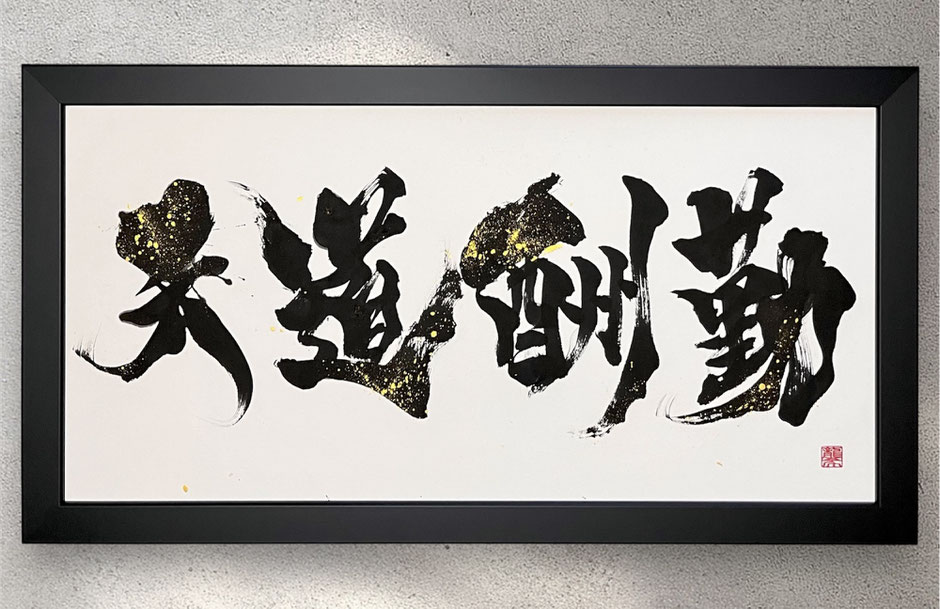 天道酬勤